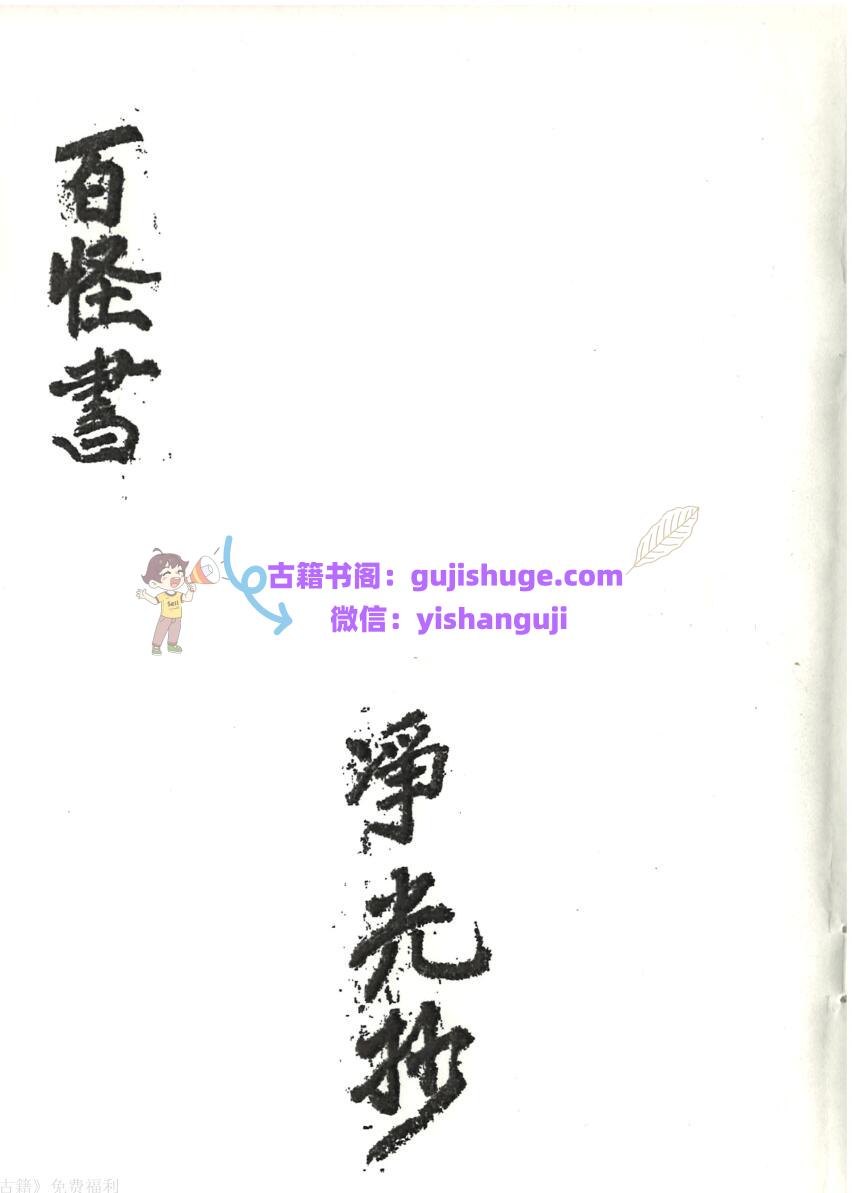 百怪書
古籍书阁：gujishuge.com
微信：yishanguji
淨光抄
古籍》免费福利